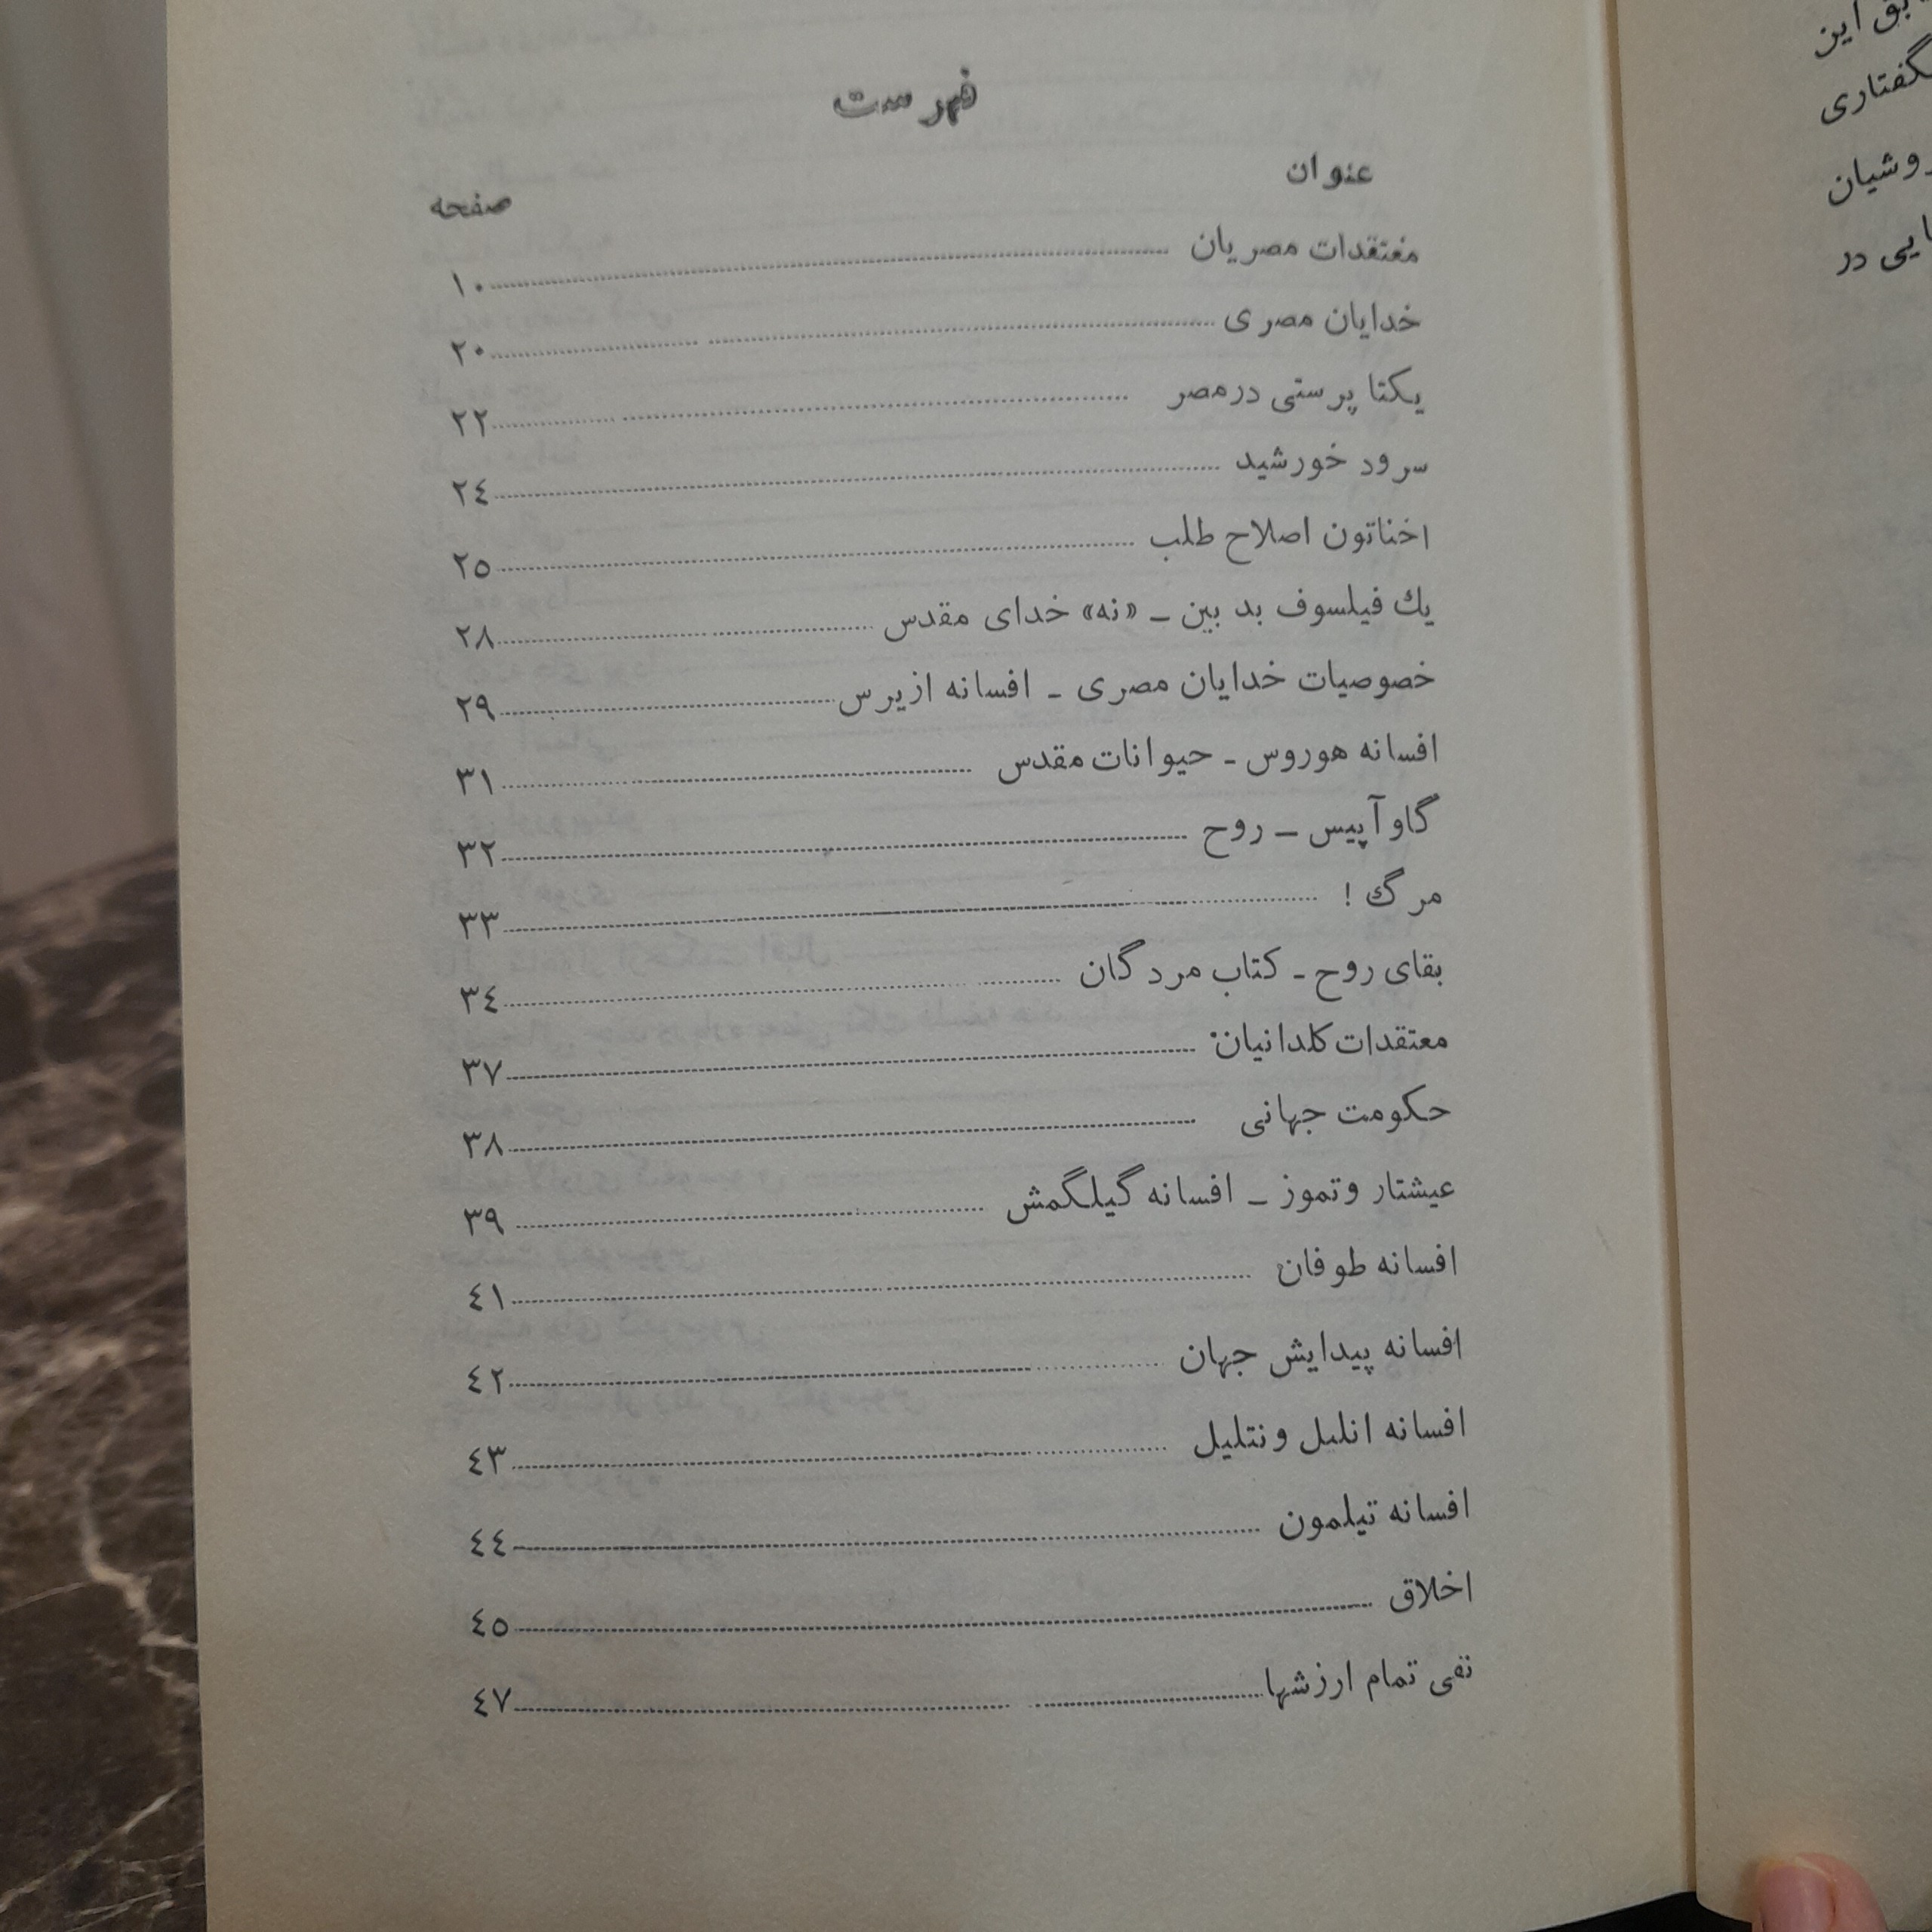 فهرست
عنوان
صفحه
معتقدات مصریان ........ ۱۰
خدایان مصری ........ ۲۰
یکتا پرستی درمصر ........ ۲۲
سرود خورشید ........ ۲٤
اخناتون اصلاح طلب ........ ۲٥
یك فیلسوف بد بین ـ «نه» خدای مقدس ........ ۲۸
خصوصیات خدایان مصری ـ افسانه ازیرس ........ ۲۹
افسانه هوروس ـ حیوانات مقدس ........ ۳۱
گاو آپیس ـ روح ........ ۳۲
مرگ ! ........ ۳۳
بقای روح ـ کتاب مردگان ........ ۳٤
معتقدات کلدانیان: ........ ۳۷
حکومت جهانی ........ ۳۸
عیشتار و تموز ـ افسانه گیلگمش ........ ۳۹
افسانه طوفان ........ ٤۱
افسانه پیدایش جهان ........ ٤۲
افسانه انلیل و نتلیل ........ ٤۳
افسانه تیلمون ........ ٤٤
اخلاق ........ ٤٥
نفی تمام ارزشها ........ ٤۷
این
گفتاری
در